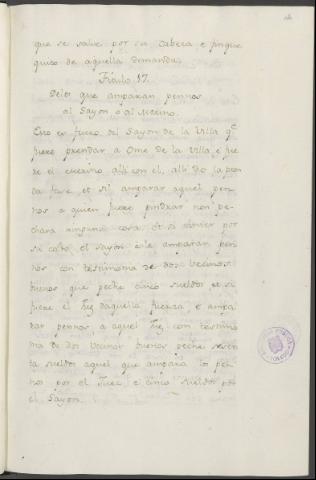 que se salve por su cabeza e pague
quito de aquella demanda.
Titulo 17.
Delos que amparan pennos
al Sayon o al Merino.
Esto es fuero del Sayon de la Villa q
fuere prendar a Ome de la Villa e fue
re el vecino alli con el, alli do la pren
da face, et si amparar aquel pen
nos a quien fuere prendar non pe
chara ninguna cosa. et si viniere por
si cabo, el Sayon e le amparan pen
nos con testimonia de dos vecinos
buenos que peche cinco sueldos et si
fuere el Juez daquella fuerza e ampa
rar pennos a aquel Juez con testimo
nia de dos vecinos buenos peche sesen
ta sueldos aquel que ampara los pen
nos por el Juez e cinco sueldos por
el Sayon.